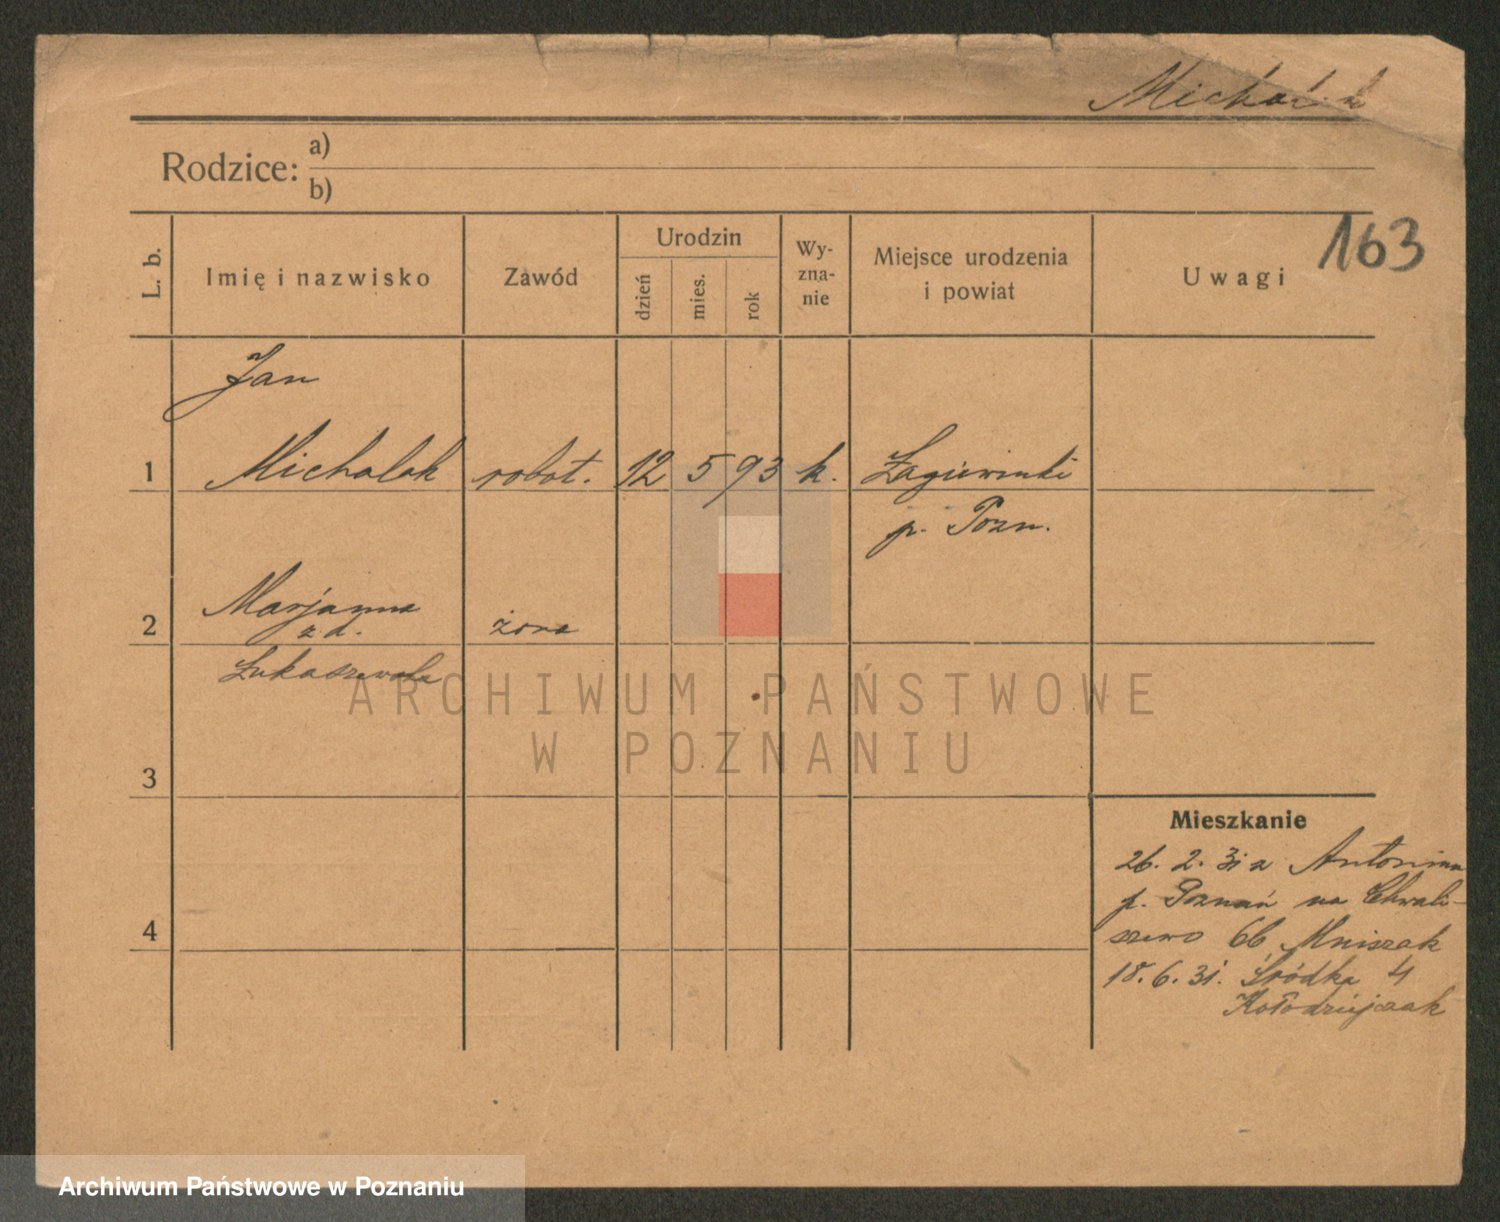 Michalak
Rodzice: a)
b)
163
L. b.
Imię i nazwisko
Zawód
Urodzin
dzień
mies.
rok
Wy-
zna-
nie
Miejsce urodzenia
i powiat
Uwagi
Jan
1 Michalak robot. 12 5 93 k. Łagiewniki
p. Pozn.
2 Marjanna żona
z d.
Łukaszewska
ARCHIWUM PAŃSTWOWE
W POZNANIU
3
Mieszkanie
26. 2. 31 z Antonina
p. Poznań na Chwali-
szewo 66 Mniszak
4
18. 6. 31. Śródka 4
Kołodziejczak
Archiwum Państwowe w Poznaniu